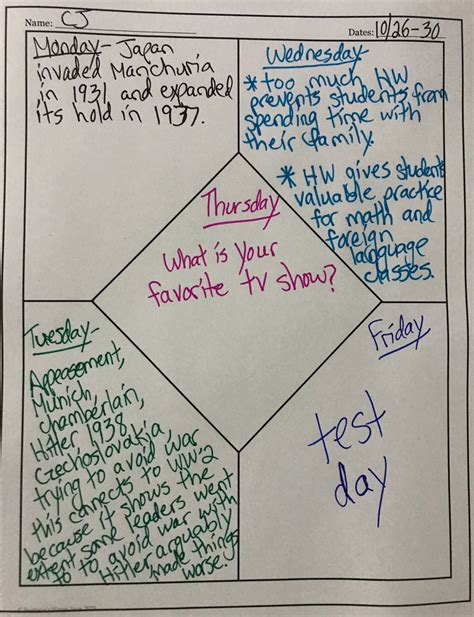 Name: CJ
Dates: 10/26-30
Monday- Japan
invaded Manchuria
in 1931 and expanded
its hold in 1937.
Wednesday-
* too much HW
prevents students from
spending time with
their family.
* HW gives students
valuable practice
for math and
foreign
language
classes.
Thursday
What is your
favorite tv show?
Tuesday-
Appeasement,
Munich,
Chamberlain,
Hitler 1938
Czechoslovakia,
trying to avoid war
this connects to WW2
because it shows the
extent some leaders went
to to avoid war with
Hitler, arguably
made things
worse.
Friday
test
day